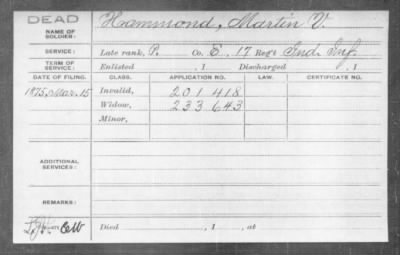 DEAD
NAME OF SOLDIER: Hammond, Martin V.
SERVICE: Late rank, P. Co. E, 17 Reg't Ind. Inf.
TERM OF SERVICE: Enlisted , 1 Discharged , 1
DATE OF FILING. CLASS. APPLICATION NO. LAW. CERTIFICATE NO.
1875, Mar. 15 Invalid, 201 418
Widow, 233 643
Minor,
ADDITIONAL SERVICES:
REMARKS:
Died , 1 , at